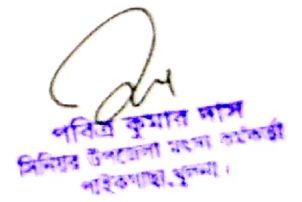 পবিত্র কুমার দাস
সিনিয়র উপজেলা মৎস্য কর্মকর্তা
পাইকগাছা, খুলনা।